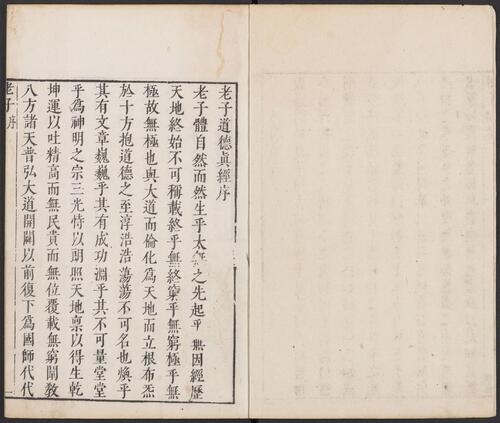 老子道德眞經序
老子體自然而然生乎太無之先起乎無因經歷
天地終始不可稱載終乎無終窮乎無窮極乎無
極故無極也與大道而倫化爲天地而立根布炁
於十方抱道德之至淳浩浩蕩蕩不可名也煥乎
其有文章巍巍乎其有成功淵乎其不可量堂堂
乎爲神明之宗三光恃以朗照天地稟以得生乾
坤運以吐精高而無民貴而無位覆載無窮闡教
八方諸天普弘大道開闢以前復下爲國師代代
老子序 一